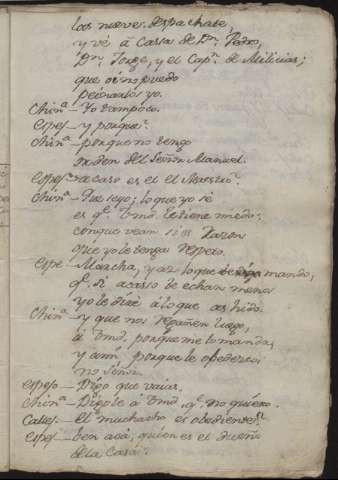 los nueves despachate
y vé à Casa de Dn. Pedro,
Dn. Jorge, y el Capn. de Milicias;
que oi no puedo
peinarlos yo.
Chinª — Yo tampoco.
espos — y porque?
chinª — porque no tengo
orden del Señor Manuel.
espos — acaso es el el Maestro?
chinª — Que se yo; lo que yo sé
es qe. Vmd. le tiene miedo:
con que vean si es Razon
que yo le tenga Respeto.
espo — Marcha, y az lo que te mando,
qe. si acaso te echan menos
yo le diré à lo que as hido.
Chinª — y que nos regañen luego,
à Vmd. porque me lo manda,
y à mi porque le obedezco:
no Señor.
espos — Digo que vaias.
chinª — Digole à Vmd. qe. no quiero.
Calles — el muchacho es obediente.
espos — ben acà; quien es el dueño
de la Casa?